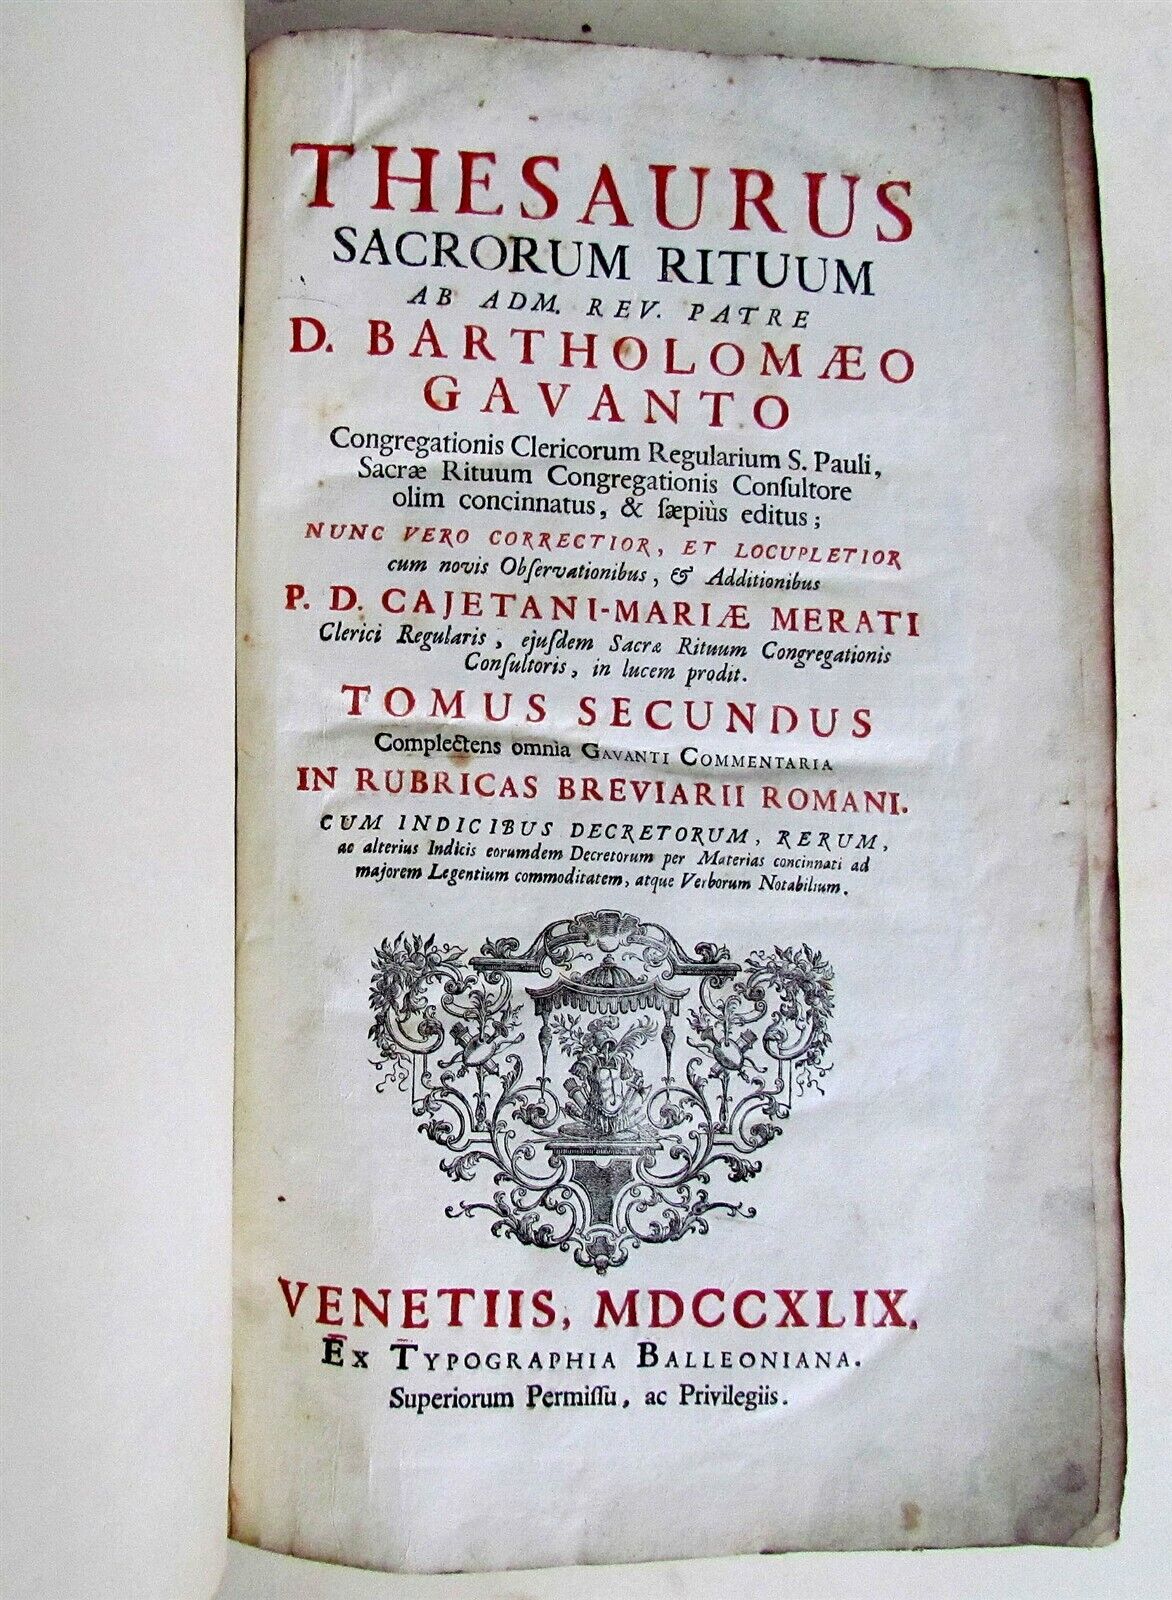 THESAURUS
SACRORUM RITUUM
AB ADM. REV. PATRE
D. BARTHOLOMÆO
GAVANTO
Congregationis Clericorum Regularium S. Pauli,
Sacræ Rituum Congregationis Conſultore
olim concinnatus, & ſæpiùs editus;
NUNC VERO CORRECTIOR, ET LOCUPLETIOR
cum novis Obſervationibus, & Additionibus
P. D. CAJETANI-MARIÆ MERATI
Clerici Regularis, ejuſdem Sacræ Rituum Congregationis
Conſultoris, in lucem prodit.
TOMUS SECUNDUS
Complectens omnia GAVANTI COMMENTARIA
IN RUBRICAS BREVIARII ROMANI.
CUM INDICIBUS DECRETORUM, RERUM,
ac alterius Indicis eorumdem Decretorum per Materias concinnati ad
majorem Legentium commoditatem, atque Verborum Notabilium.
VENETIIS, MDCCXLIX.
EX TYPOGRAPHIA BALLEONIANA.
Superiorum Permiſſu, ac Privilegiis.